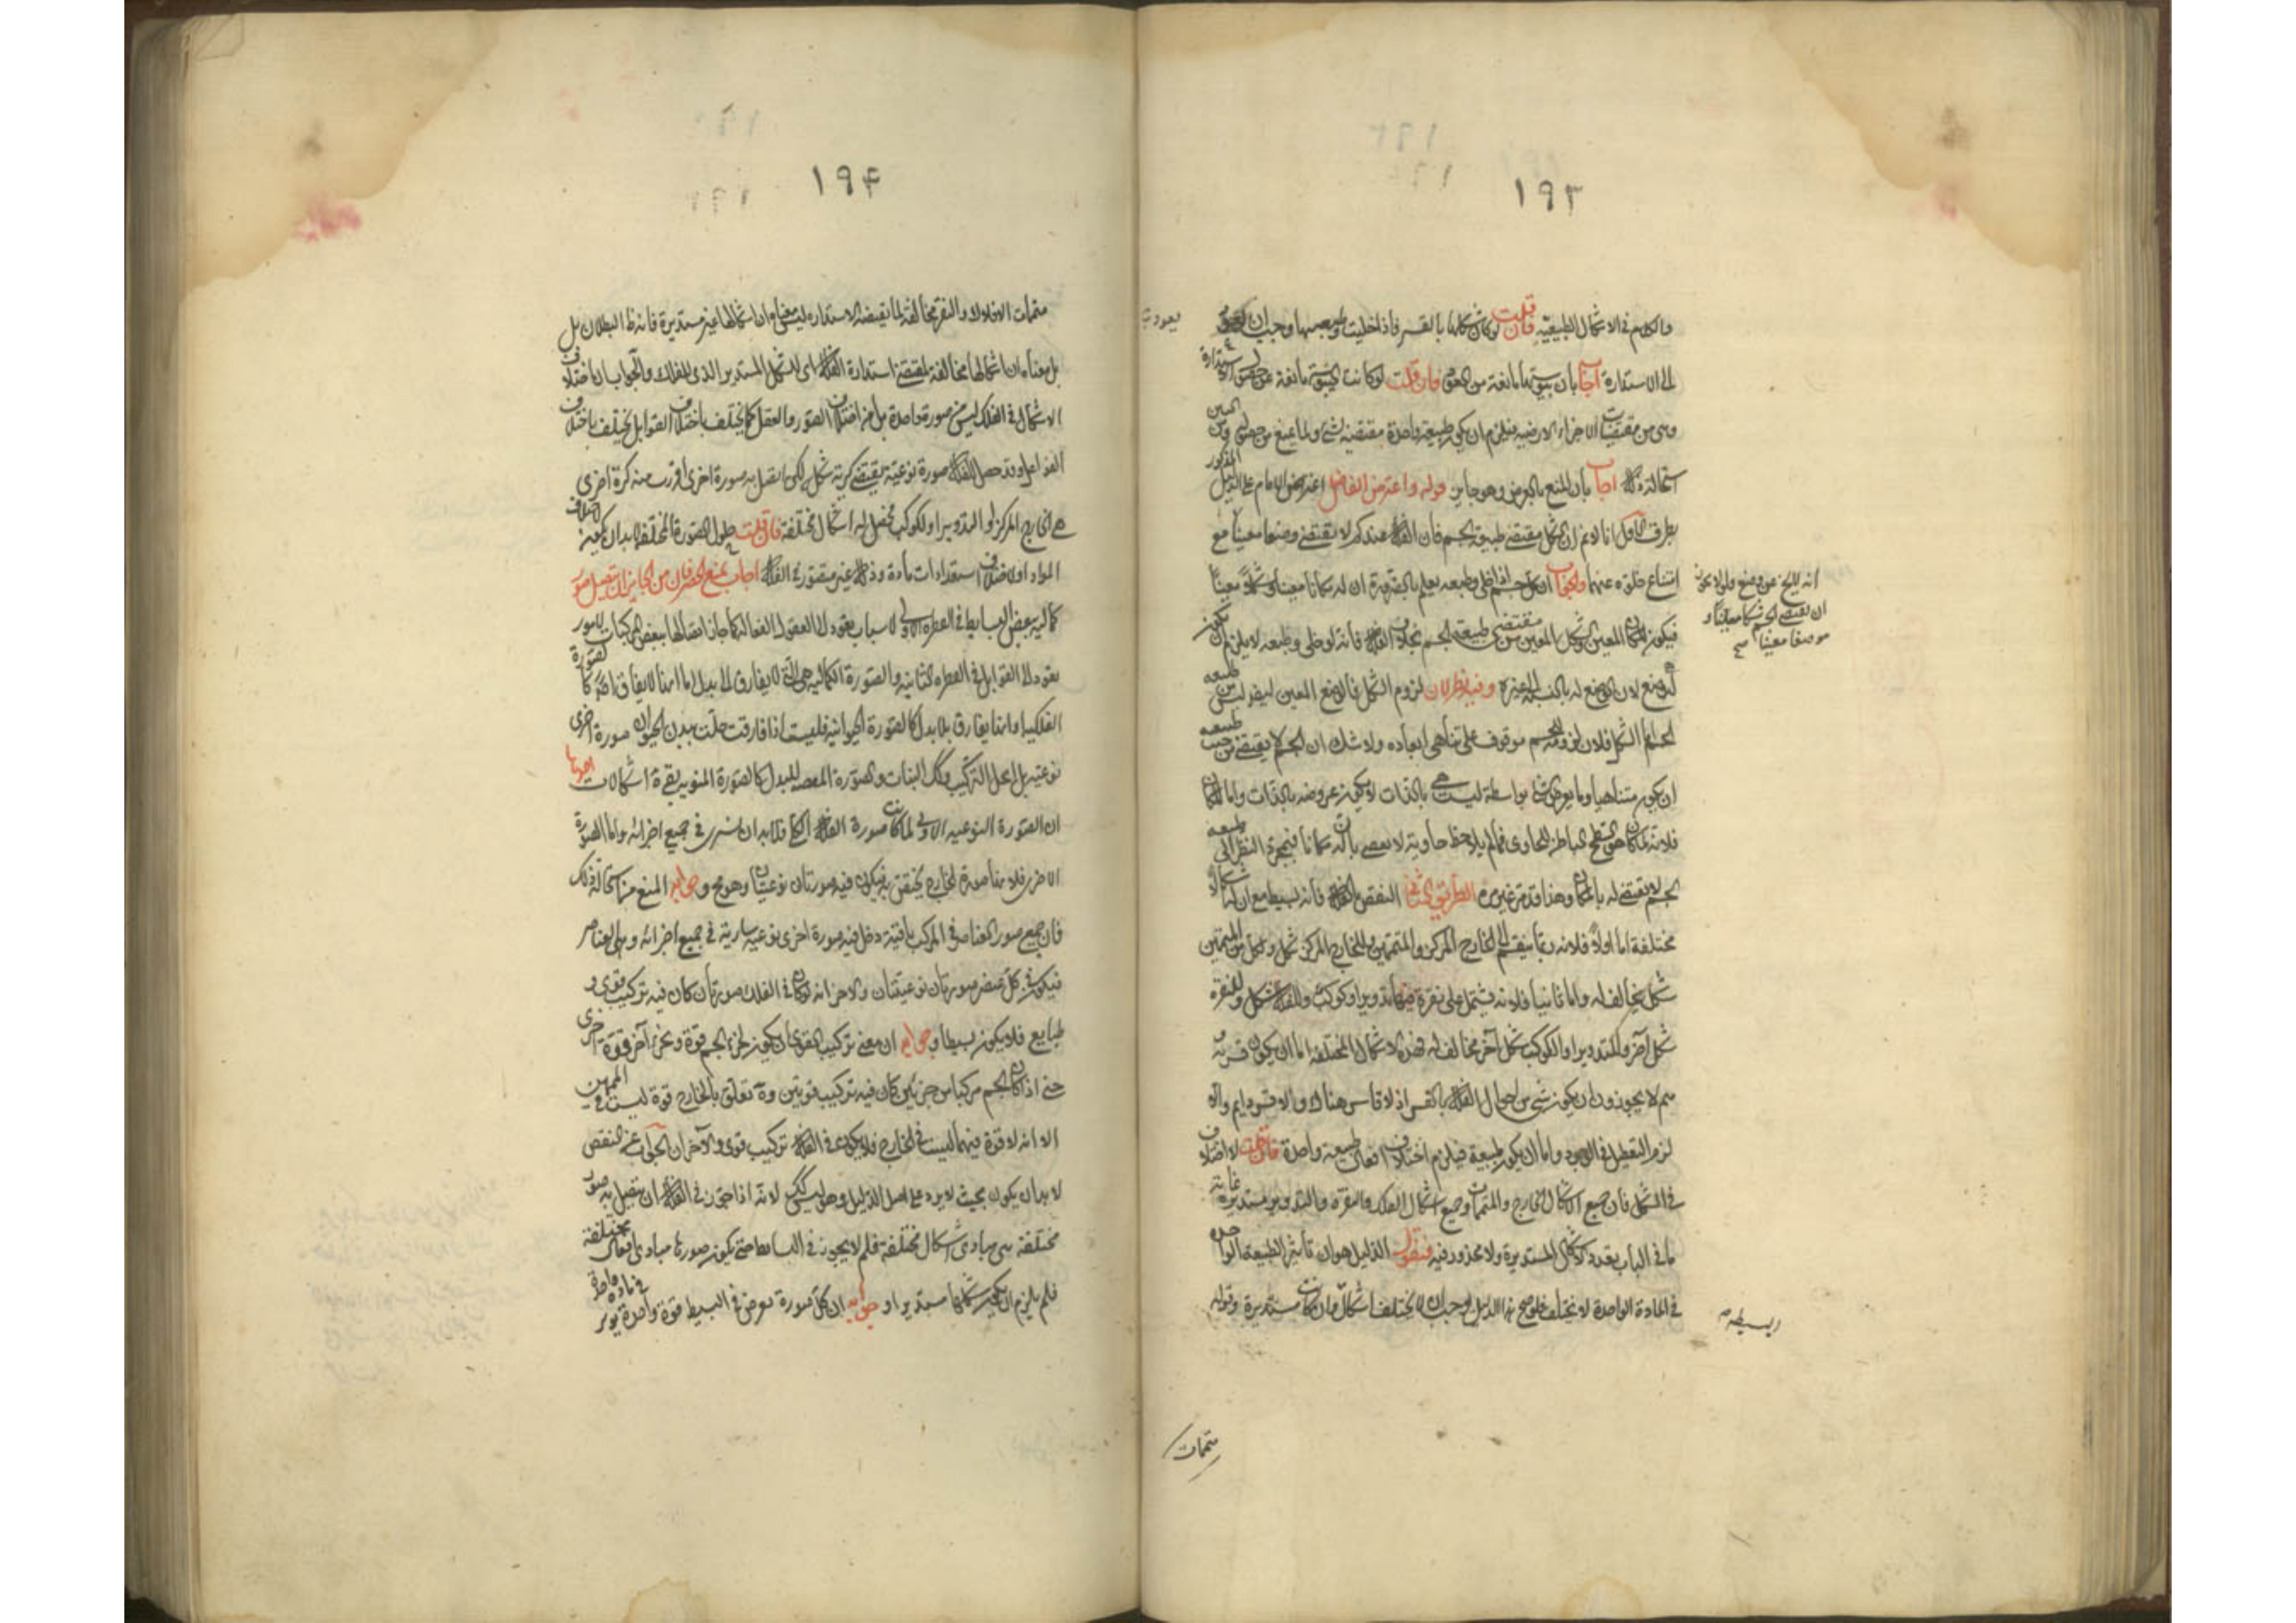 ١٩٣
والكلام في الاشكال الطبيعية فان قلت لو كان شكلها بالقسر فاذا خليت وطبيعتها وجب ان تعود
الى الاستدارة اجاب بان يبوستها مانعة من العود فان قلت لو كانت اليبوسة مانعة عن حصول الاستدارة
وهي من مقتضيات الاجزاء الارضية فيلزم ان يكون طبيعة واحدة مقتضية لشيء ولما يمنع من حصوله
استحالة ذلك اجاب بان المنع بالعرض وهو جايز قوله واعترض الفاضل اعترض الامام على الدليل المذكور
بطرق الاول انا لا نم ان الشكل مقتضى طبيعة الجسم فان الفلك عندكم لا يقتضي وضعا معينا مع
امتناع خلوه عنها والجواب ان كل جسم اذا خلي وطبعه يعلم بالضرورة ان له مكانا معينا وشكلا معينا
فيكون المكان المعين والشكل المعين من مقتضى طبيعة الجسم بخلاف الفلك فانه لو خلي وطبعه لا يلزم ان يكون
له وضع لان الوضع له بالنسبة الى غيره وفيه نظر لان لزوم الشكل فالوضع المعين ليفر ليس من طبيعة
الجسم اما الشكل فلان لزومه للجسم موقوف على تناهي ابعاده ولا شك ان الجسم لا يقتضي من حيث طبيعته
ان يكون متناهيا وما يعرض لشيء بواسطة ليست هي بالذات لا يكون عروضه بالذات واما المكان
فلانه لما كان هو السطح الباطن للحاوي فما لم يلاحظ حاوية لا يعصى بان له مكانا فبمجرد النظر الى طبيعة
الجسم لا يقتضى له بالمكان وهذا قد مر غير مرة الطريق الثاني النقض بالفلك فانه بسيط مع ان له اشكالا
مختلفة اما اولا فلانه ربما ينقسم الى الخارج المركز والمتممين وللخارج المركز شكل ولكل من المتممين
شكل يخالف له واما ثانيا فلانه يشتمل على نقرة فيها تدوير او كوكب وللفلك شكل وللنقرة
شكل آخر وللتدوير او الكوكب شكل آخر مخالف له فهذه الاشكال المختلفة اما ان يكون قسرية
وهم لا يجوزون ان يكون شيء من احوال الفلك بالقسر اذ لا قاسر هناك والا قسر دايم والا
لزم التعطيل في الوجود واما ان يكون طبيعية فيلزم اختلاف افعال طبيعة واحدة فان قلت لا اختلاف
في الشكل فان جميع اشكال الخارج والمتممات وجميع اشكال الفلك والنقرة والتدوير مستديرة غاية
ما في الباب تعدد الاشكال المستديرة ولا محذور فيه فنقول الدليل هو ان تأثير الطبيعة الواحدة
في المادة الواحدة لا يختلف فلو صح هذا الدليل لوجب ان لا يختلف اشكاله وان كانت مستديرة وقوله
يعود
انه لا يخ عن وضع فلم لا يجوز
ان يقتضي الجسم شكلا معينا و
موضعا معينا صح
متممات
١٩۴
متممات الافلاك والنقر مخالفة لما يقتضيه الاستدارة ليس معناه ان اشكالها غير مستديرة فانه ظ البطلان بل
بل معناه ان اشكالها مخالفة لمقتضى استدارة الفلك اي للشكل المستدير الذي للفلك والجواب ان اختلاف
الاشكال في الفلك ليس من صورة واحدة بل من اختلاف الصور والعقل كما يختلف باختلاف القوابل يختلف باختلاف
الفواعل وقد حصل للفلك صورة نوعية يقتضي كرية شكله لكن اتصل به صورة اخرى افرزت منه كرة اخرى
هي الخارج المركز او التدوير او الكوكب فحصل له اشكال مختلفة فان قلت حلول الصورة المختلفة لا بد ان يكون لاختلاف
المواد او لاختلاف استعدادات مادة وذلك غير متصور في الفلك اجاب بمنع الحصر فان من الجايز ان يتصل صور
كمالية ببعض البسايط في الفطرة الاولى لاسباب يعود الى العقول الفعالة كما جاز اتصالها ببعض المركبات لامور
يعود الى القوابل في الفطرة الثانية والصورة الكمالية هي التي لا يفارق الى بدل اما انها لا يفارق اصلا كالصورة
الفلكية او انها يفارق بلا بدل كالصورة الحيوانية فليست اذا فارقت حلت بدن الحيوان صورة اخرى
نوعية بل انحل التركيب وكذلك النبات والصورة المعصلة للبدل كالصورة المنوية بقي هنا اشكالات احدها
ان الصورة النوعية الاولى لما كانت صورة الفلك الكلي فلا بد ان تسري في جميع اجزائه واما الصورة
الاخرى فلانها صورة الخارج يختص به فيكون فيه صورتان نوعيتان وهو مح وجوابه المنع من استحالة ذلك
فان جميع صور العناصر في المركب باقية دخل فيه صورة اخرى نوعية سارية في جميع اجزائه وهي العناصر
فيكون في كل عنصر صورتان نوعيتان والاخر انه لو كان في الفلك صورتان كان فيه تركيب قوى و
طبايع فلا يكون بسيطا وجوابه ان معنى تركيب القوى ان يكون لجزء الجسم قوة ولجزء آخر قوة اخرى
حتى اذا كان الجسم مركبا من جزئين كان فيه تركيب قوتين وهنا تعلق بالخارج قوة ليست في المتممين
الا انه لا قوة فيهما ليست في الخارج فلا يكون في الفلك تركيب قوى والآخر ان الجواب عن النقض
لا بد ان يكون بحيث لا يرد على اصل الدليل وهو ليس كك لانه اذا جوز في الفلك ان يتصل به صور
مختلفة هي مبادي اشكال مختلفة فلم لا يجوز في البسايط حتى يكون صورها مبادي افعال مختلفة
فلم يلزم ان يكون شكلها مستديرا وجوابه ان كل صورة تعرض في البسيط قوة واحدة يؤثر في مادة واحدة